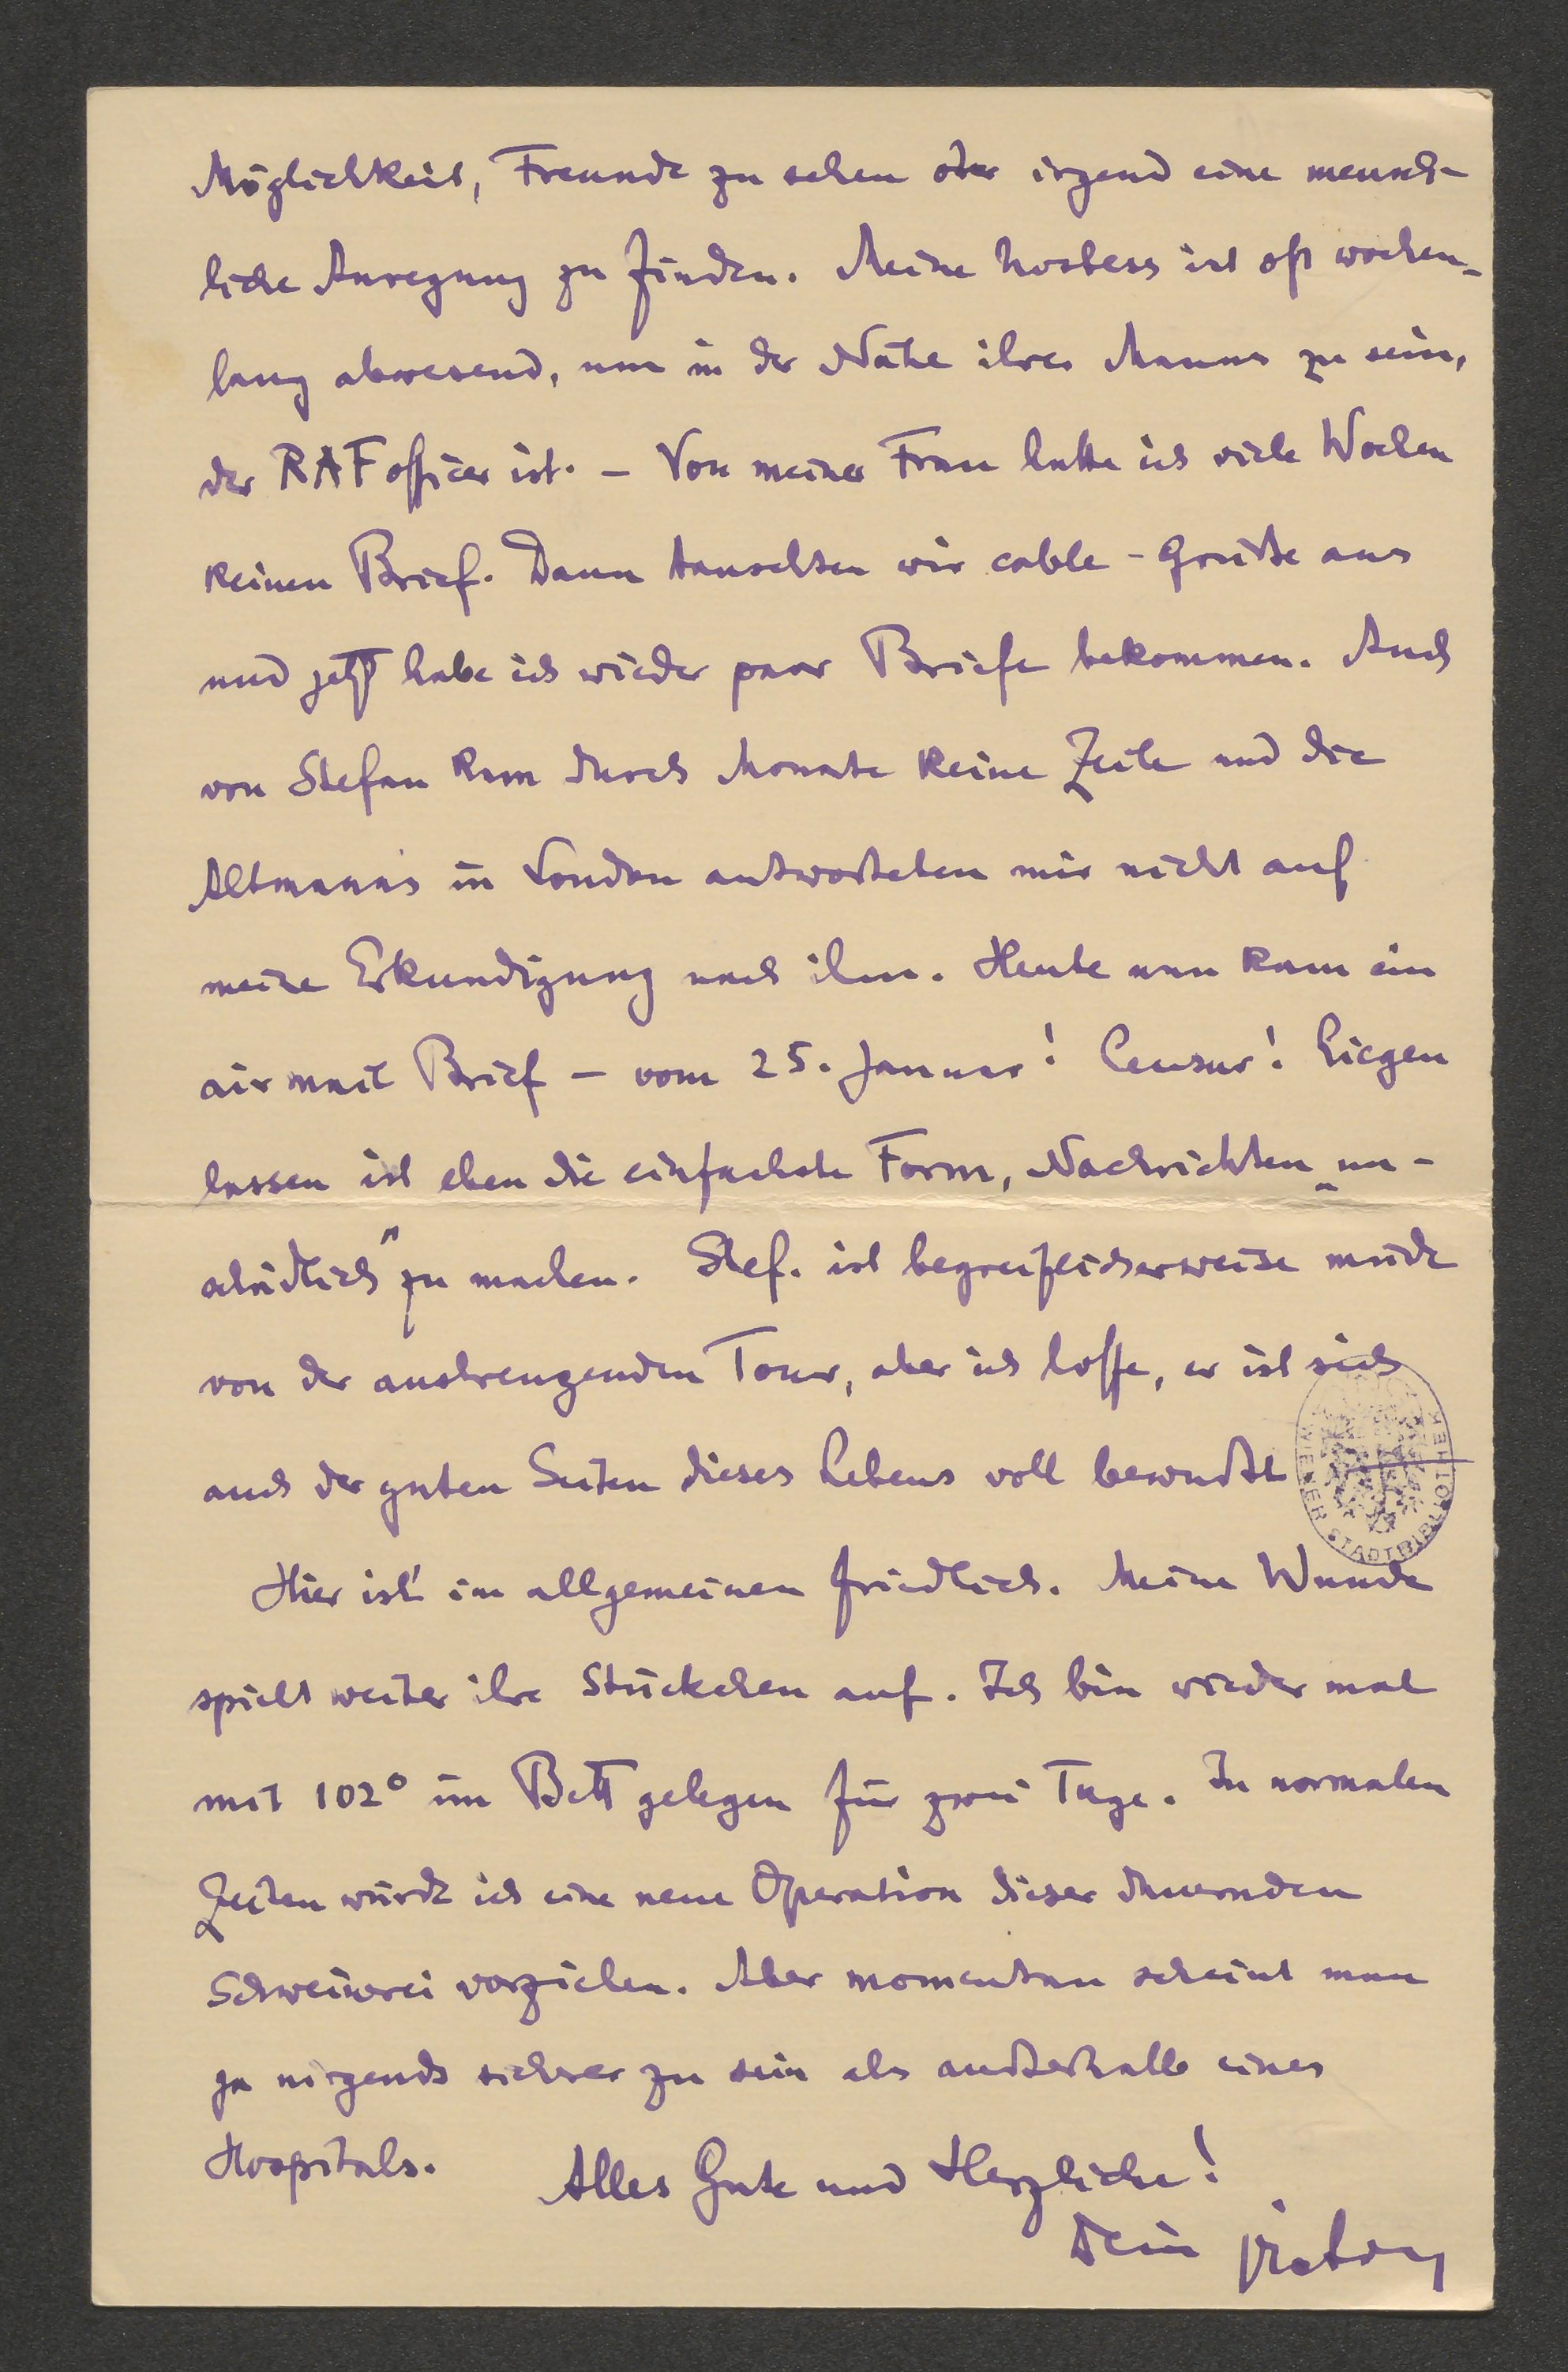 Möglichkeit, Freunde zu sehen oder irgend eine mensch-
liche Anregung zu finden. Meine hostess ist oft wochen-
lang abwesend, um in der Nähe ihres Mannes zu sein,
der RAF officer ist. – Von meiner Frau hatte ich viele Wochen
keinen Brief. Dann tauschten wir cable-Grüße aus
und jetzt habe ich wieder paar Briefe bekommen. Auch
von Stefan kam durch Monate keine Zeile und die
Altmanns in London antworteten mir nicht auf
meine Erkundigung nach ihm. Heute nun kam ein
air mail Brief – vom 25. Januar! Censur! Liegen
lassen ist eben die einfachste Form, Nachrichten „un-
schädlich" zu machen. Stef. ist begreiflicherweise müde
von der anstrengenden Tour, aber ich hoffe, er ist sich
auch der guten Seiten dieses Lebens voll bewußt
WIENER STADTBIBLIOTHEK
Hier ist's im allgemeinen friedlich. Meine Wunde
spielt weiter ihre Stückchen auf. Ich bin wieder mal
mit 102° im Bett gelegen für zwei Tage. In normalen
Zeiten würde ich eine neue Operation dieser dauernden
Schweinerei vorziehen. Aber momentan scheint man
ja nirgends sichrer zu sein als außerhalb eines
Hospitals.
Alles Gute und Herzliche!
Dein Viktor